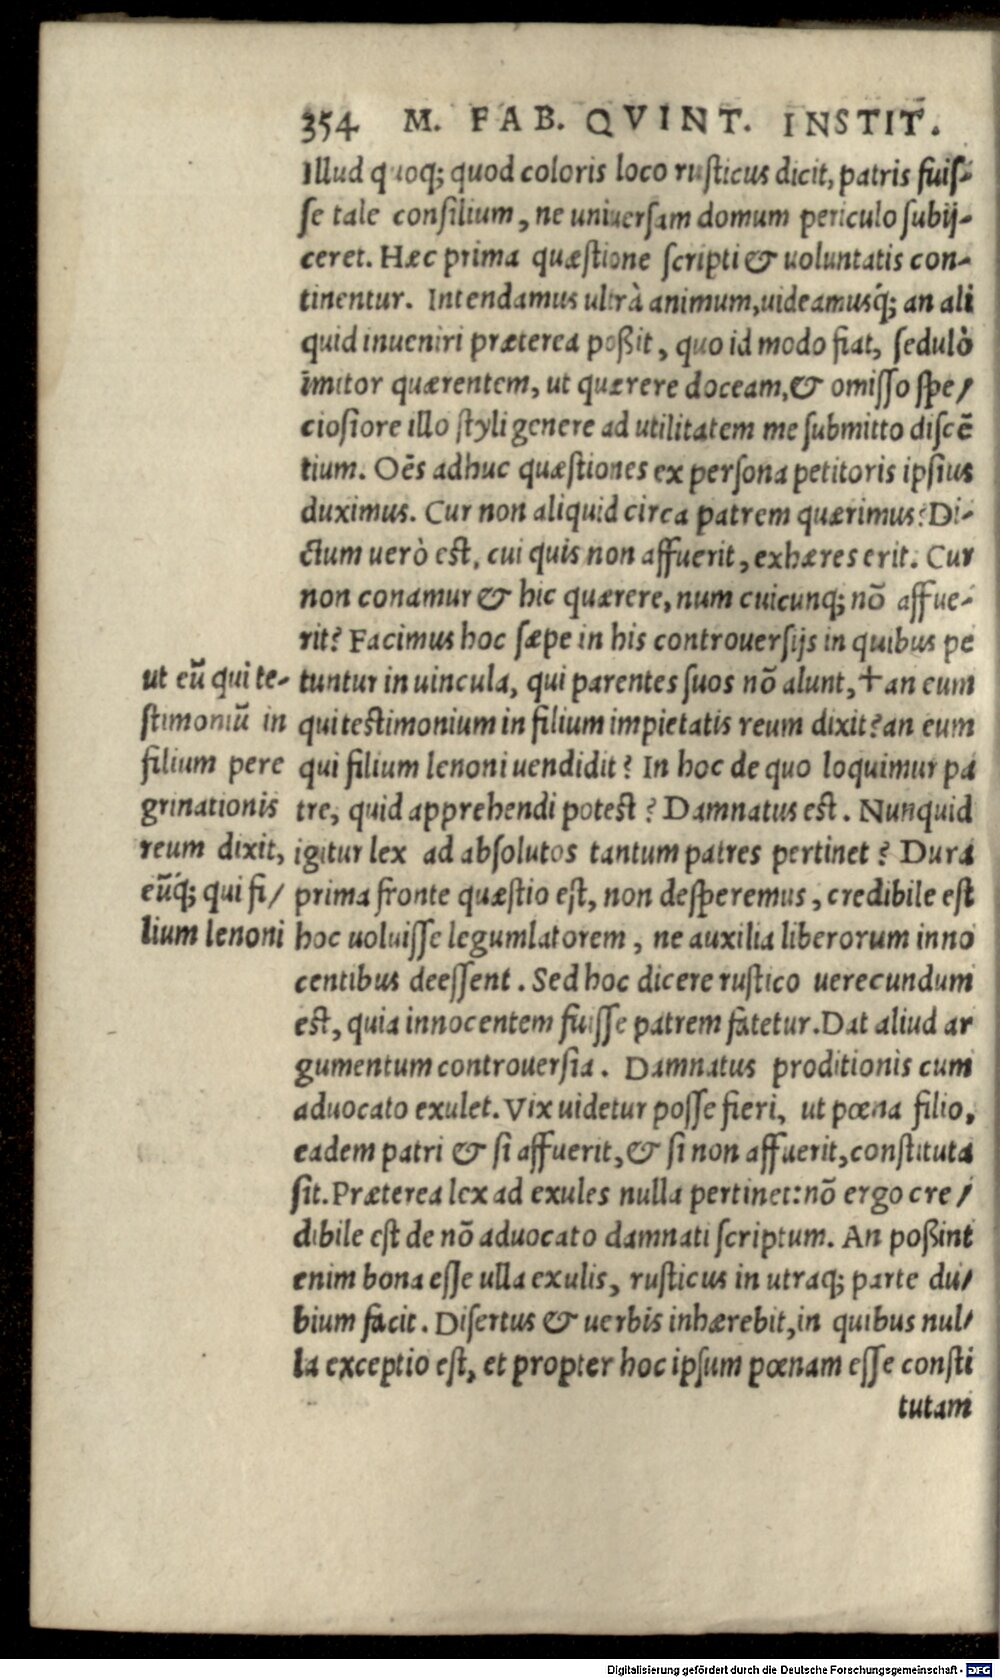 354 M. FAB. QVINT. INSTIT.
Illud quoq; quod coloris loco rusticus dicit, patris fuis-
se tale consilium, ne uniuersam domum periculo subij-
ceret. Hæc prima quæstione scripti & uoluntatis con-
tinentur. Intendamus ultrà animum, uideamusq́; an ali
quid inueniri præterea poßit, quo id modo fiat, sedulò
imitor quærentem, ut quærere doceam, & omisso spe/
ciosiore illo styli genere ad utilitatem me submitto discẽ
tium. Oẽs adhuc quæstiones ex persona petitoris ipsius
duximus. Cur non aliquid circa patrem quærimus? Di-
ctum uerò est, cui quis non affuerit, exhæres erit. Cur
non conamur & hic quærere, num cuicunq; nõ affue-
rit? Facimus hoc sæpe in his controuersijs in quibus pe
tuntur in uincula, qui parentes suos nõ alunt, + an eum
qui testimonium in filium impietatis reum dixit? an eum
qui filium lenoni uendidit? In hoc de quo loquimur pa
tre, quid apprehendi potest? Damnatus est. Nunquid
igitur lex ad absolutos tantum patres pertinet? Dura
prima fronte quæstio est, non desperemus, credibile est
hoc uoluisse legumlatorem, ne auxilia liberorum inno
centibus deessent. Sed hoc dicere rustico uerecundum
est, quia innocentem fuisse patrem fatetur. Dat aliud ar
gumentum controuersia. Damnatus proditionis cum
aduocato exulet. Vix uidetur posse fieri, ut pœna filio,
eadem patri & si affuerit, & si non affuerit, constituta
sit. Præterea lex ad exules nulla pertinet: nõ ergo cre/
dibile est de nõ aduocato damnati scriptum. An poßint
enim bona esse ulla exulis, rusticus in utraq; parte du/
bium facit. Disertus & uerbis inhærebit, in quibus nul/
la exceptio est, et propter hoc ipsum pœnam esse consti
tutam
ut eũ qui te-
stimoniũ in
filium pere
grinationis
reum dixit,
eũq́; qui fi/
lium lenoni
Digitalisierung gefördert durch die Deutsche Forschungsgemeinschaft - DFG